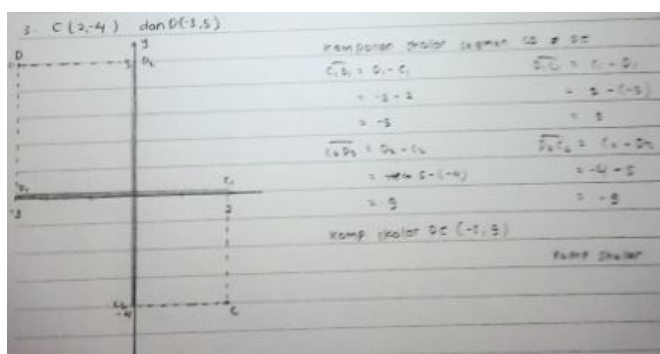 3. C (2,-4) dan D(-3,5)
y
D
5 D₂
D₁ C₁
-3 2
C₂
-4 C
Komponen skalar segmen CD & DC
C₁D₁ = D₁ - C₁
= -3 - 2
= -5
C₂D₂ = D₂ - C₂
= 5 - (-4)
= 9
Komp skalar (-5, 9)
D₁C₁ = C₁ - D₁
= 2 - (-3)
= 5
D₂C₂ = C₂ - D₂
= -4 - 5
= -9
Komp skalar